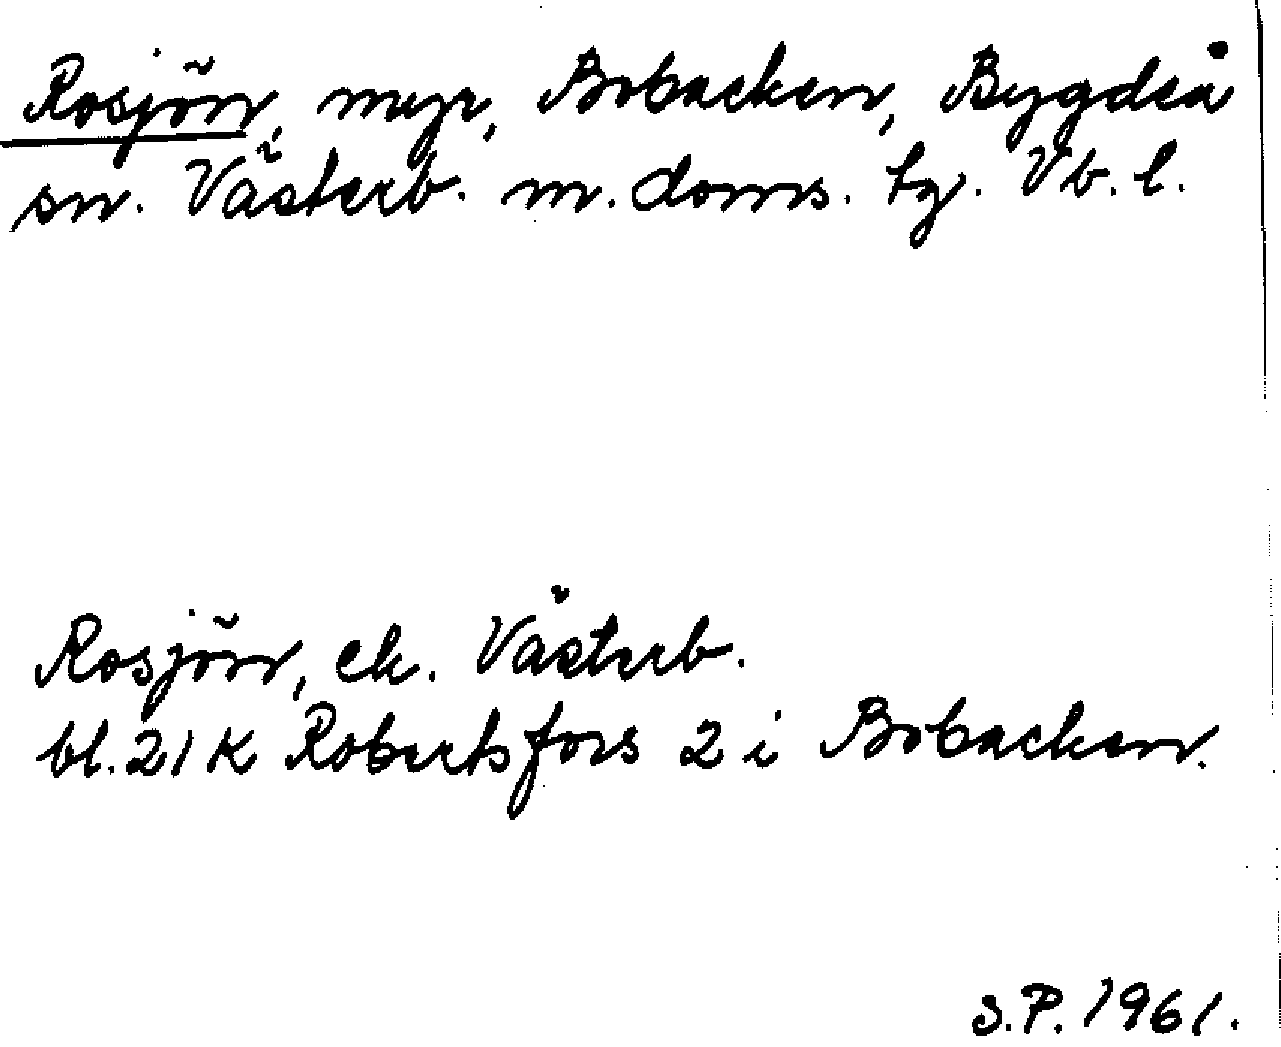 Rosjön, myr, Bobacken, Bygdeå
sn. Västerb. m. doms. tg. Vb. l.
Rosjön, ek. Västerb.
bl. 21 K Robertsfors 2 i Bobacken.
S.P. 1961.